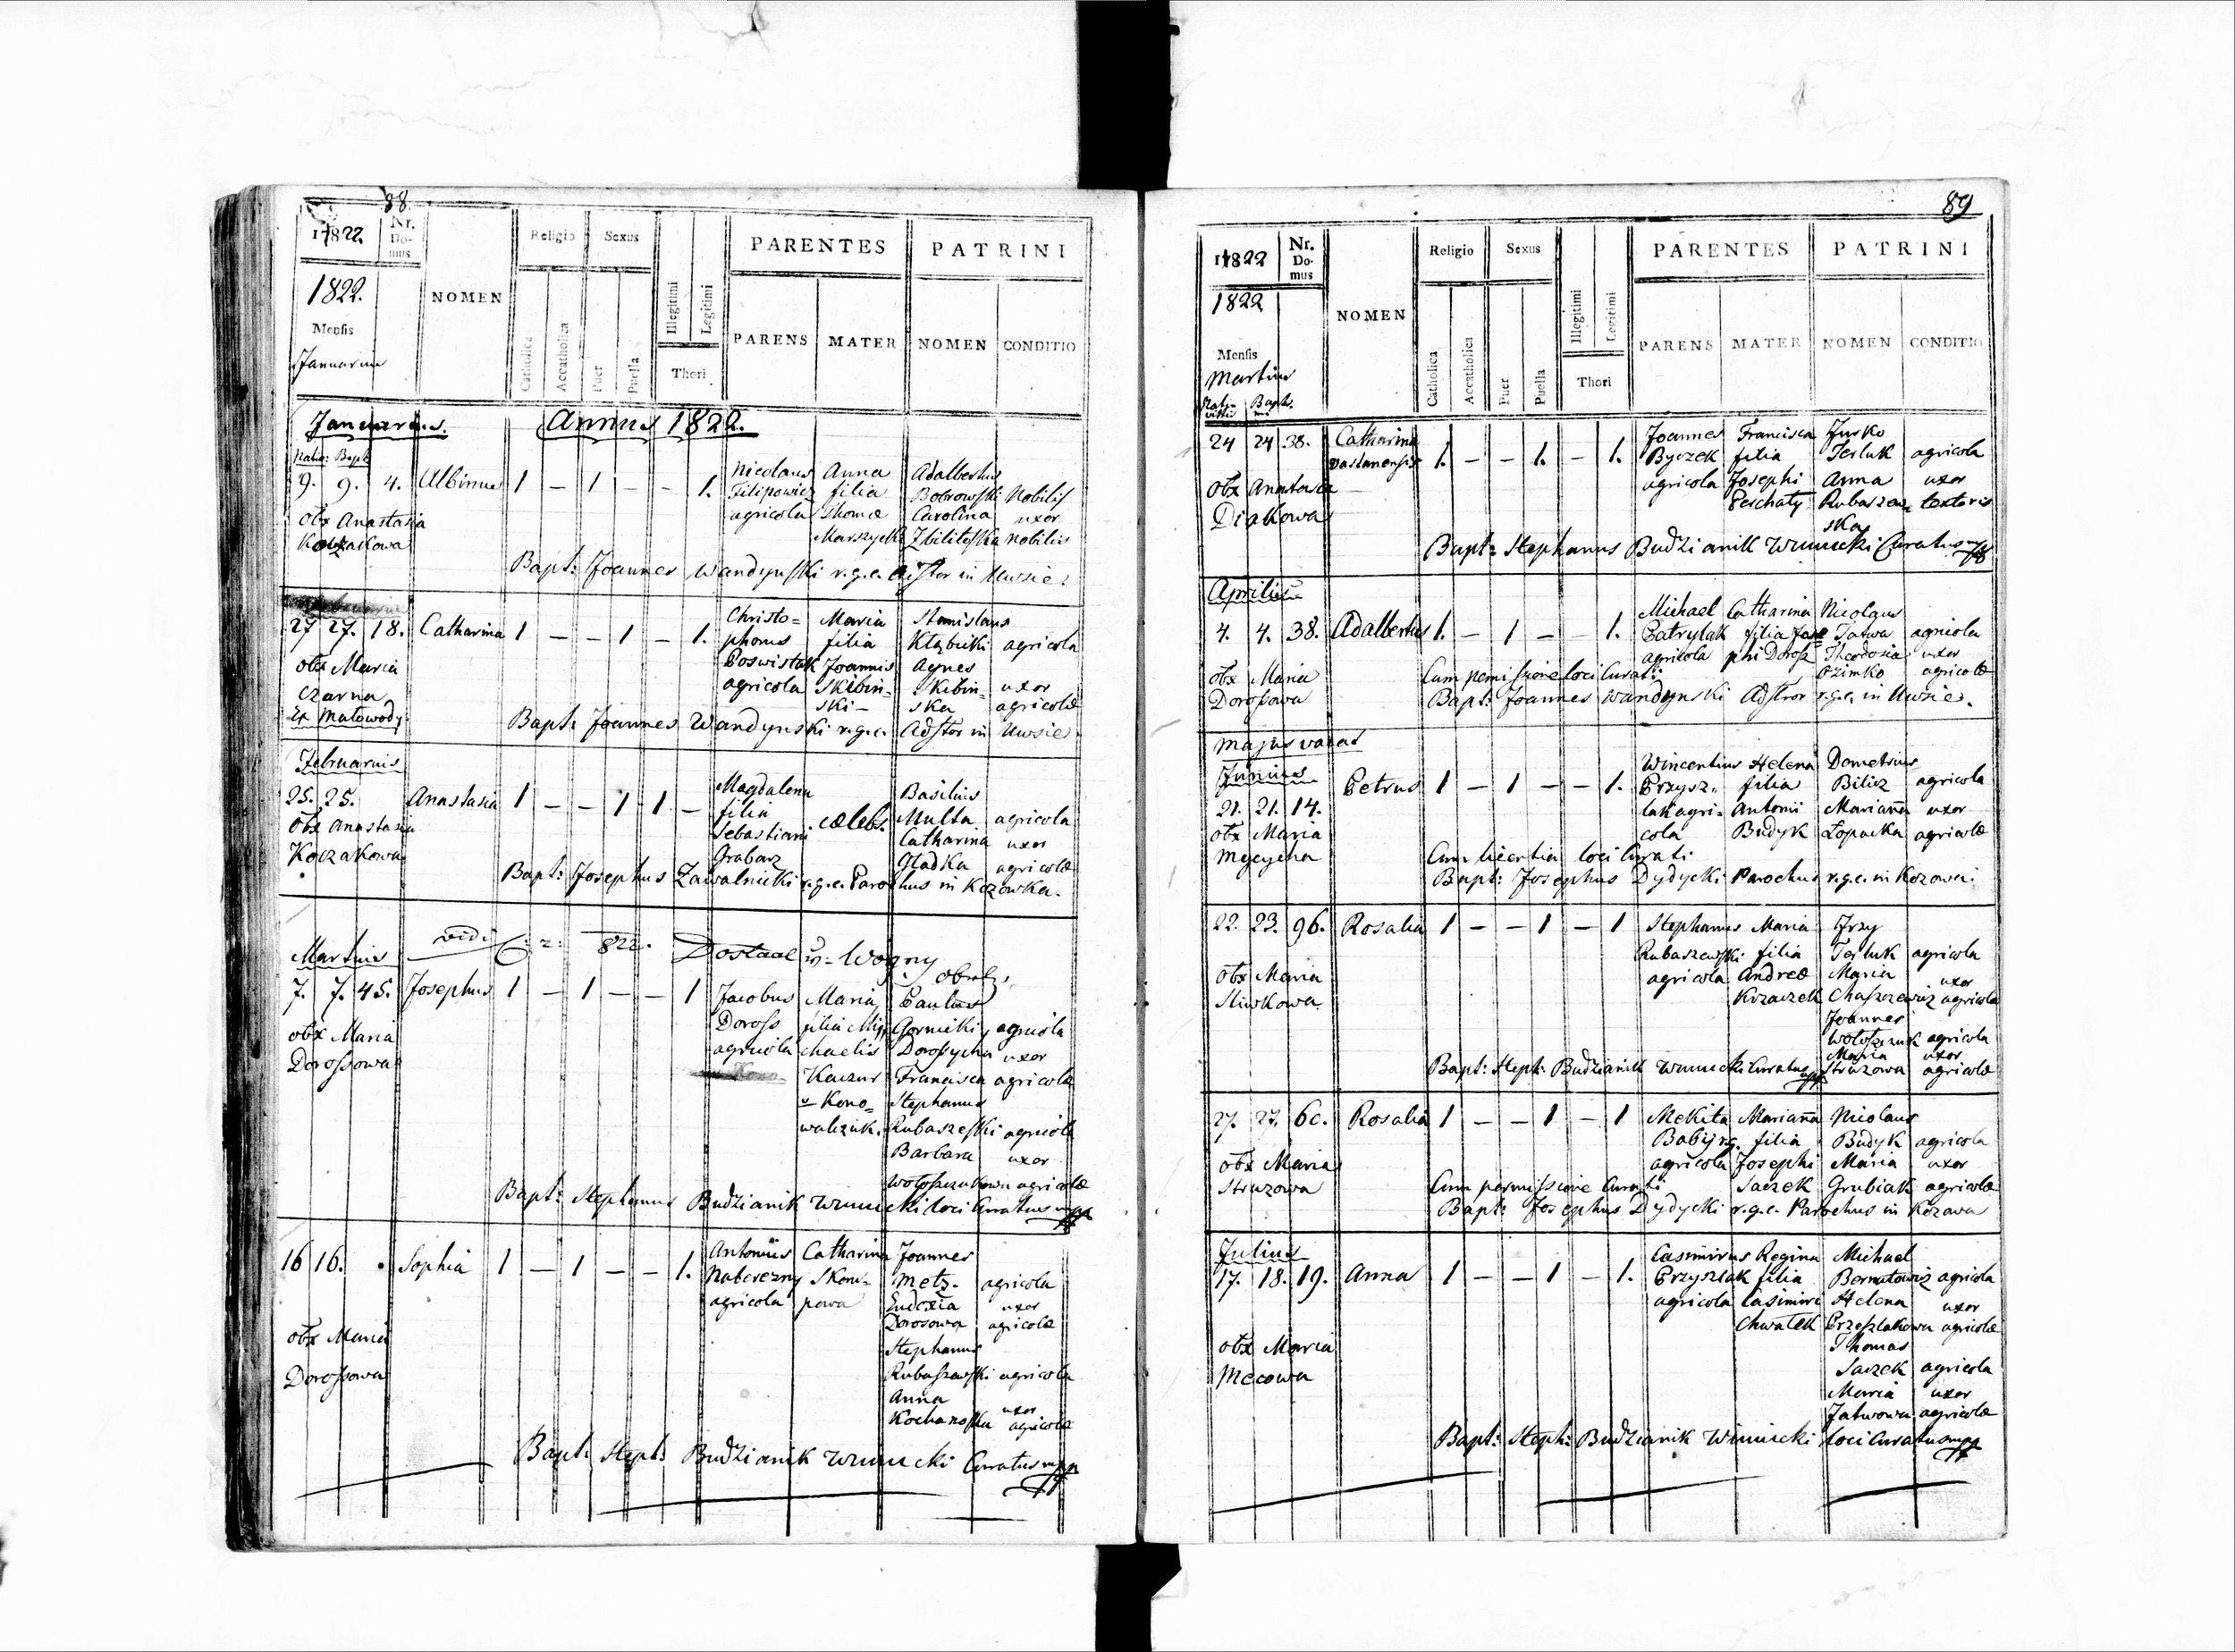 88.
1822. Nr. Domus NOMEN Religio Sexus PARENTES PATRINI
1822.
Mensis
Januarius
Catholica Accatholica Puer Puella Illegitimi Legitimi Thori PARENS MATER NOMEN CONDITIO
Januarius. Annus 1822.
Nativ: Bapt:
9. 9. 4. Albinus 1 – 1 – – 1. Nicolaus Anna Adalbertus
Filipowicz filia Bobrowski Nobilis
agricola Thomæ Carolina uxor
Marszycki Zbilitoska nobilis
obx Anastasia
Koczakowa
Bapt: Joannes Wandynski r.g.c. Adstor in Uwsie.
27 27. 18. Catharina 1 – – 1 – 1. Christo= Maria Stanislaus
phorus filia Kłębicki agricola
Poswistak Joannis Agnes
agricola Skibin= Skibin= uxor
ski – ska agricolæ
obx Maria
Czarna
Ex Małowody
Bapt: Joannes Wandynski r.g.c. Adstor in Uwsie.
Februarius
25. 25. Anastasia 1 – – 1 1 – Magdalena Basilius
filia cælebs. Multa agricola
Sebastiani Catharina uxor
Grabarz Gładka agricolæ
obx Anastasia
Koczakowa
Bapt: Josephus Zawalnicki r.g.c. Parochus in Kozowka.
vidi 822. Dostaal
Martius
7. 7. 45. Josephus 1 – 1 – – 1 Jacobus Maria Paulus
Doross filia Mi= Gornicki agricola
agricola chaelis Dorossycha uxor
Kaczur Francisca agricolæ
v Kono= Stephanus
walczuk. Rubaszeski agricola
Barbara uxor
Wołoszczukowa agricolæ
obx Maria
Dorossowa
Bapt: Stephanus Budzianik Winnicki loci Curatus mpp
16 16. . Sophia 1 – 1 – – 1. Antonius Catharina Joannes
Naberezny Skom= Metz- agricola
agricola powa Eudoxia uxor
Dorosowa agricolæ
Stephanus
Rubaszewski agricola
Anna
Kochanoska uxor
agricolæ
obx Maria
Dorossowa
Bapt: Steph: Budzianik Winnicki Curatus mpp
89
1822 Nr. Domus NOMEN Religio Sexus PARENTES PATRINI
1822
Mensis
Martius
Catholica Accatholica Puer Puella Illegitimi Legitimi Thori PARENS MATER NOMEN CONDITIO
Nativitatis Baptismi
24 24 38. Catharina 1. – – 1. – 1. Joannes Francisca Jurko
Byczek filia Terluk agricola
agricola Josephi Anna uxor
Peschaty Rubaszew= textoris
ska
obx Anastasia
Diakowa
Bapt: Stephanus Budzianik Winnicki Curatus mpp
Aprilis
4. 4. 38. Adalbertus 1. – 1 – – 1. Michael Catharina Nicolaus
Patrylak filia Jose Jatwa agricola
agricola phi Doross Theodosia uxor
Ozimko agricolæ
obx Maria
Dorossowa
Cum permissione loci Curati
Bapt: Joannes Wandynski Adstor r.g.c. in Uwsie.
Majus vacat
Junius
21. 21. 14. Petrus 1 – 1 – – 1. Wincentius Helena Demetrius
Przysz= filia Bilisz agricola
lak agri= Antonii Marianna uxor
cola Budyk Łopacka agricolæ
obx Maria
Mecycha
Cum licentia loci Curati
Bapt: Josephus Dydycki Parochus r.g.c. in Kozowa:
22. 23. 96. Rosalia 1 – – 1 – 1 Stephanus Maria Jrzy
Rubaszewski filia Terluk agricola
agricola Andreæ Maria uxor
Kozaczek Chaszczewicz agricolæ
Joannes
Wołoszczuk agricola
Maria uxor
Struzowa agricolæ
obx Maria
Sliwkowa
Bapt: Steph: Budzianik Winnicki Curatus mpp
27. 27. 60. Rosalia 1 – – 1 – 1 Mekita Marianna Nicolaus
filia Budyk agricola
agricola Josephi Maria uxor
Saczek Grubiak agricolæ
obx Maria
Struzowa
Cum permissione Curati
Bapt: Josephus Dydycki r.g.c. Parochus in Kozowa
Julius
17. 18. 19. Anna 1 – – 1 – 1. Casimirus Regina Michael
Przyszlak filia Bernatowicz agricola
agricola Casimiri Helena uxor
Chwałek Przeszlakowa agricolæ
Thomas
Saczek agricola
Maria uxor
Jatwowa agricolæ
obx Maria
Mecowa
Bapt: Steph: Budzianik Winnicki loci Curatus mpp